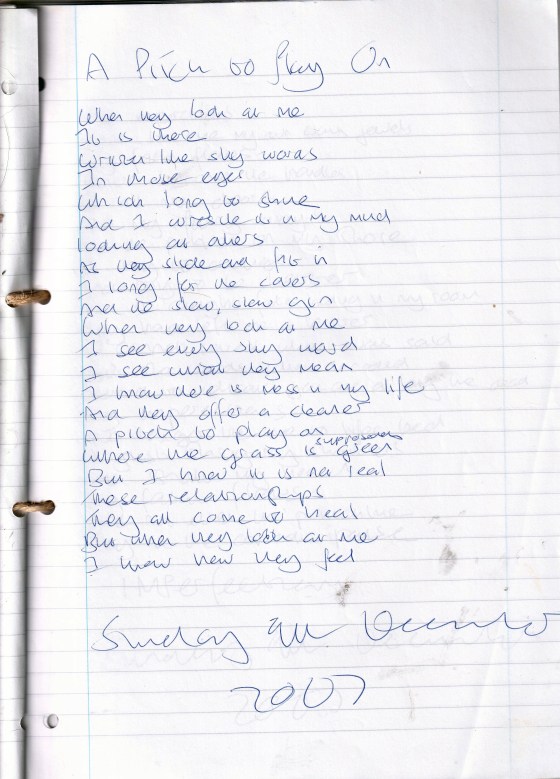 A Pitch to Play On
When they look at me
It is there
Written like sky words
In those eyes
Which long to shine
And I wrestle it in my mind
looking at others
As they slide and fit in
I long for the covers
And the slow, slow gin
When they look at me
I see every sky word
I see what they mean
I know there is mess in my life
And they offer a cleaner
A pitch to play on
Where the grass is supposedly green
But I know it is not real
These relationships
They all come to heal
But when they look at me
I know how they feel
Sunday 9th December
2007